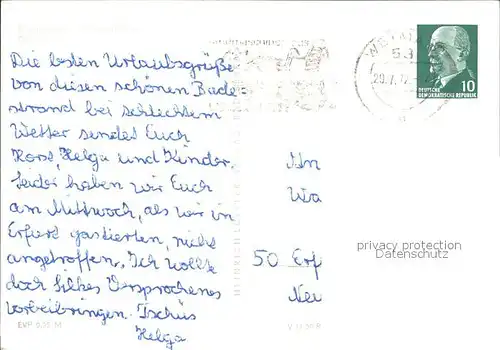 Die besten Urlaubsgrüße
von diesen schönen Bade-
strand bei schlechtem
Wetter sendet Euch
Horst, Helga und Kinder.
Leider haben wir Euch
am Mittwoch, als wir in
Erfurt gastierten, nicht
angetroffen. Ich wollte
doch Silkes Versprochenes
vorbeibringen. Tschüs
Helga
EVP 0,20 M
WEIMAR
53
29.7.72
10
DEUTSCHE
DEMOKRATISCHE REPUBLIK
An
Wa
50 Erf
Neu
privacy protection
Datenschutz